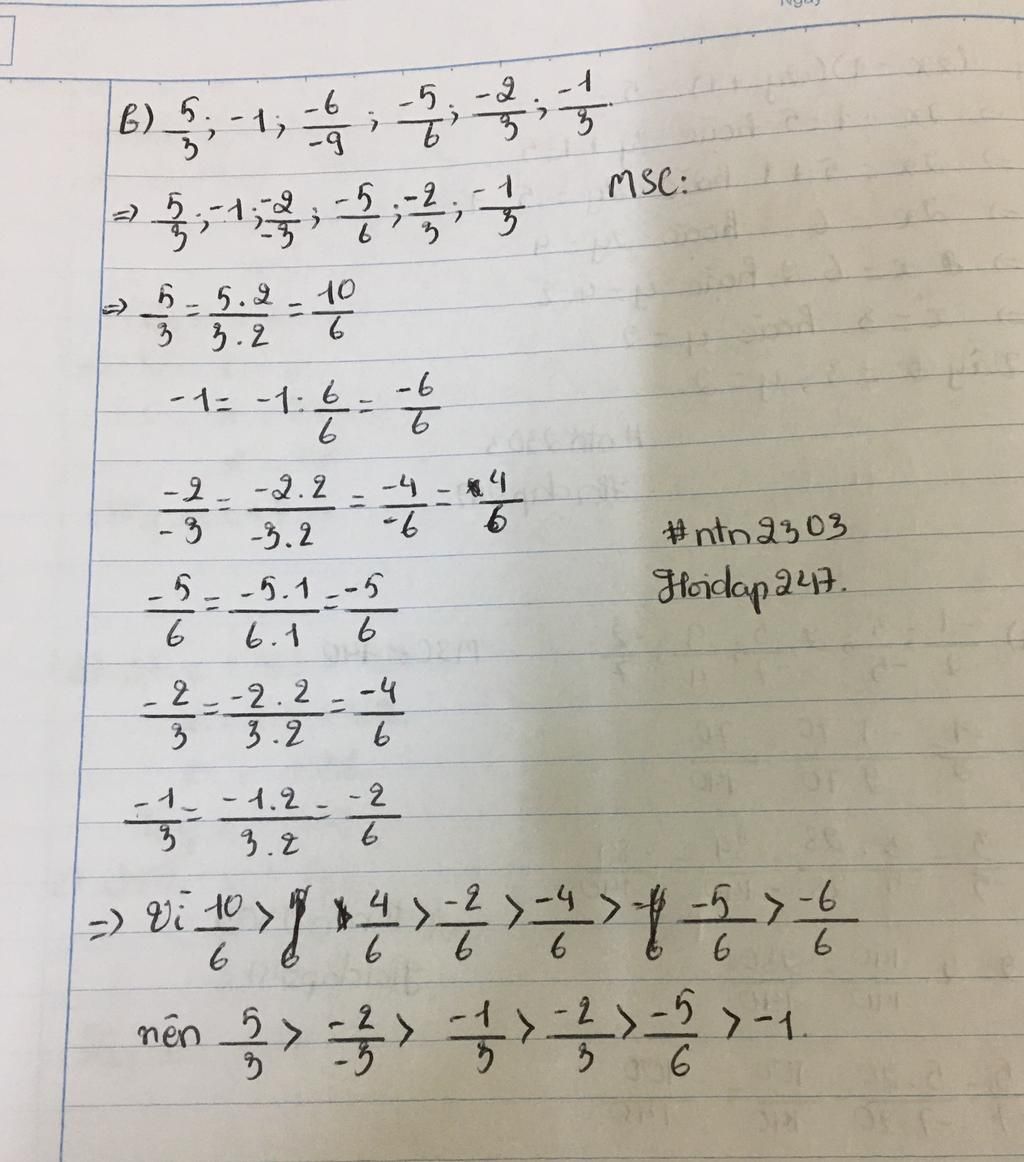 Ngày
B) 5/3; -1; -6/-9; -5/6; -2/3; -1/3.
=> 5/3; -1; -2/-3; -5/6; -2/3; -1/3 MSC:
=> 5/3 = 5.2/3.2 = 10/6
-1 = -1: 6/6 = -6/6
-2/-3 = -2.2/-3.2 = -4/-6 = 4/6
#ntn2303
-5/6 = -5.1/6.1 = -5/6
Hoidap247.
-2/3 = -2.2/3.2 = -4/6
-1/3 = -1.2/3.2 = -2/6
=> Vì 10/6 > 4/6 > -2/6 > -4/6 > -5/6 > -6/6
nên 5/3 > -2/-3 > -1/3 > -2/3 > -5/6 > -1.